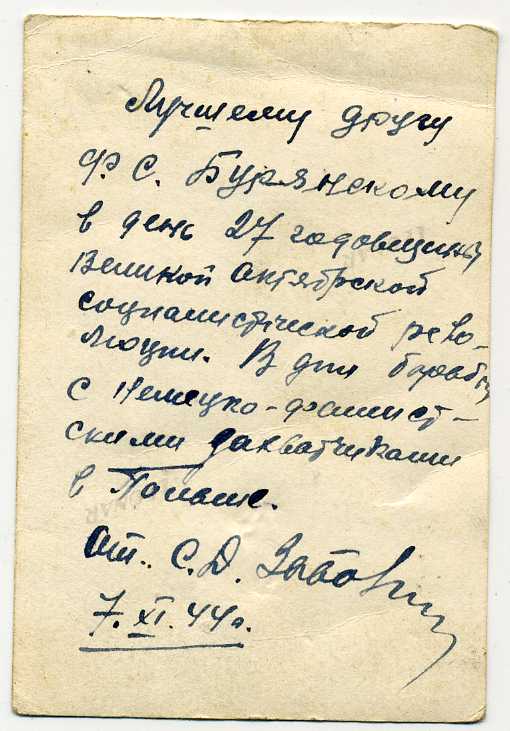 Лучшему другу
Ф. С. Бурянскому
в день 27 годовщины
Великой Октябрской
социалистической рево-
люции. В дни борьбы
с немецко-фашист-
скими захватчиками
в Польше.
от. С. Д.
7. XI. 44 г.